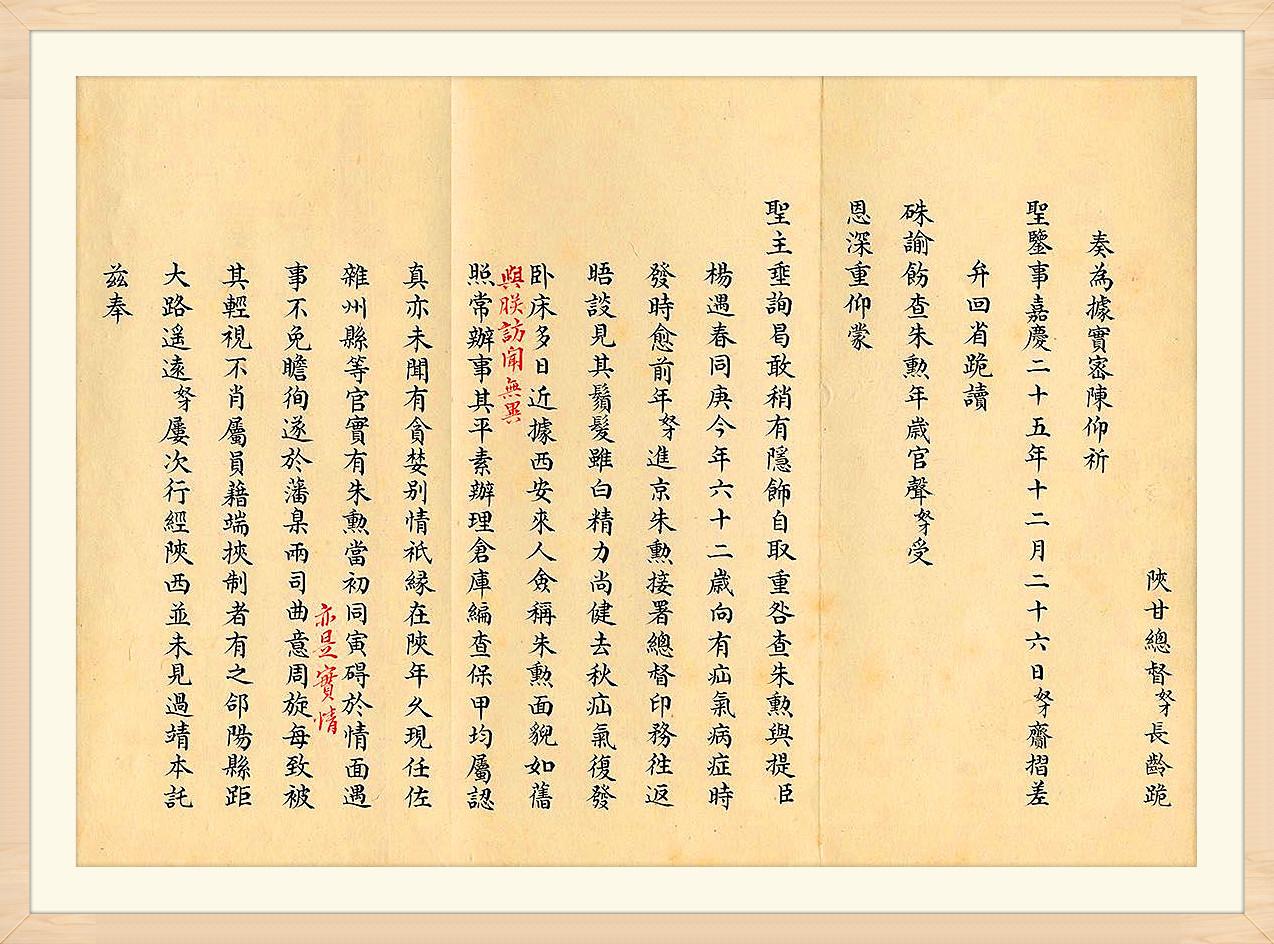 陝甘總督奴才長齡跪
奏為據實密陳仰祈
聖鑒事嘉慶二十五年十二月二十六日奴才齎摺差
弁回省跪讀
硃諭飭查朱勲年歲官聲奴才受
恩深重仰蒙
聖主垂詢曷敢稍有隱飾自取重咎查朱勲與提臣
楊遇春同庚今年六十二歲向有疝氣病症時
發時愈前年奴才進京朱勲接署總督印務往返
晤談見其鬚髮雖白精力尚健去秋疝氣復發
卧床多日近據西安來人僉稱朱勲面貌如舊
與朕訪聞無異
照常辦事其平素辦理倉庫編查保甲均屬認
真亦未聞有貪婪别情祇緣在陝年久現任佐
雜州縣等官實有朱勲當初同寅碍於情面遇
亦是實情
事不免瞻徇遂於藩臬兩司曲意周旋每致被
其輕視不肖屬員藉端挾制者有之郃陽縣距
大路遥遠奴才屢次行經陝西並未見過靖本託
茲奉